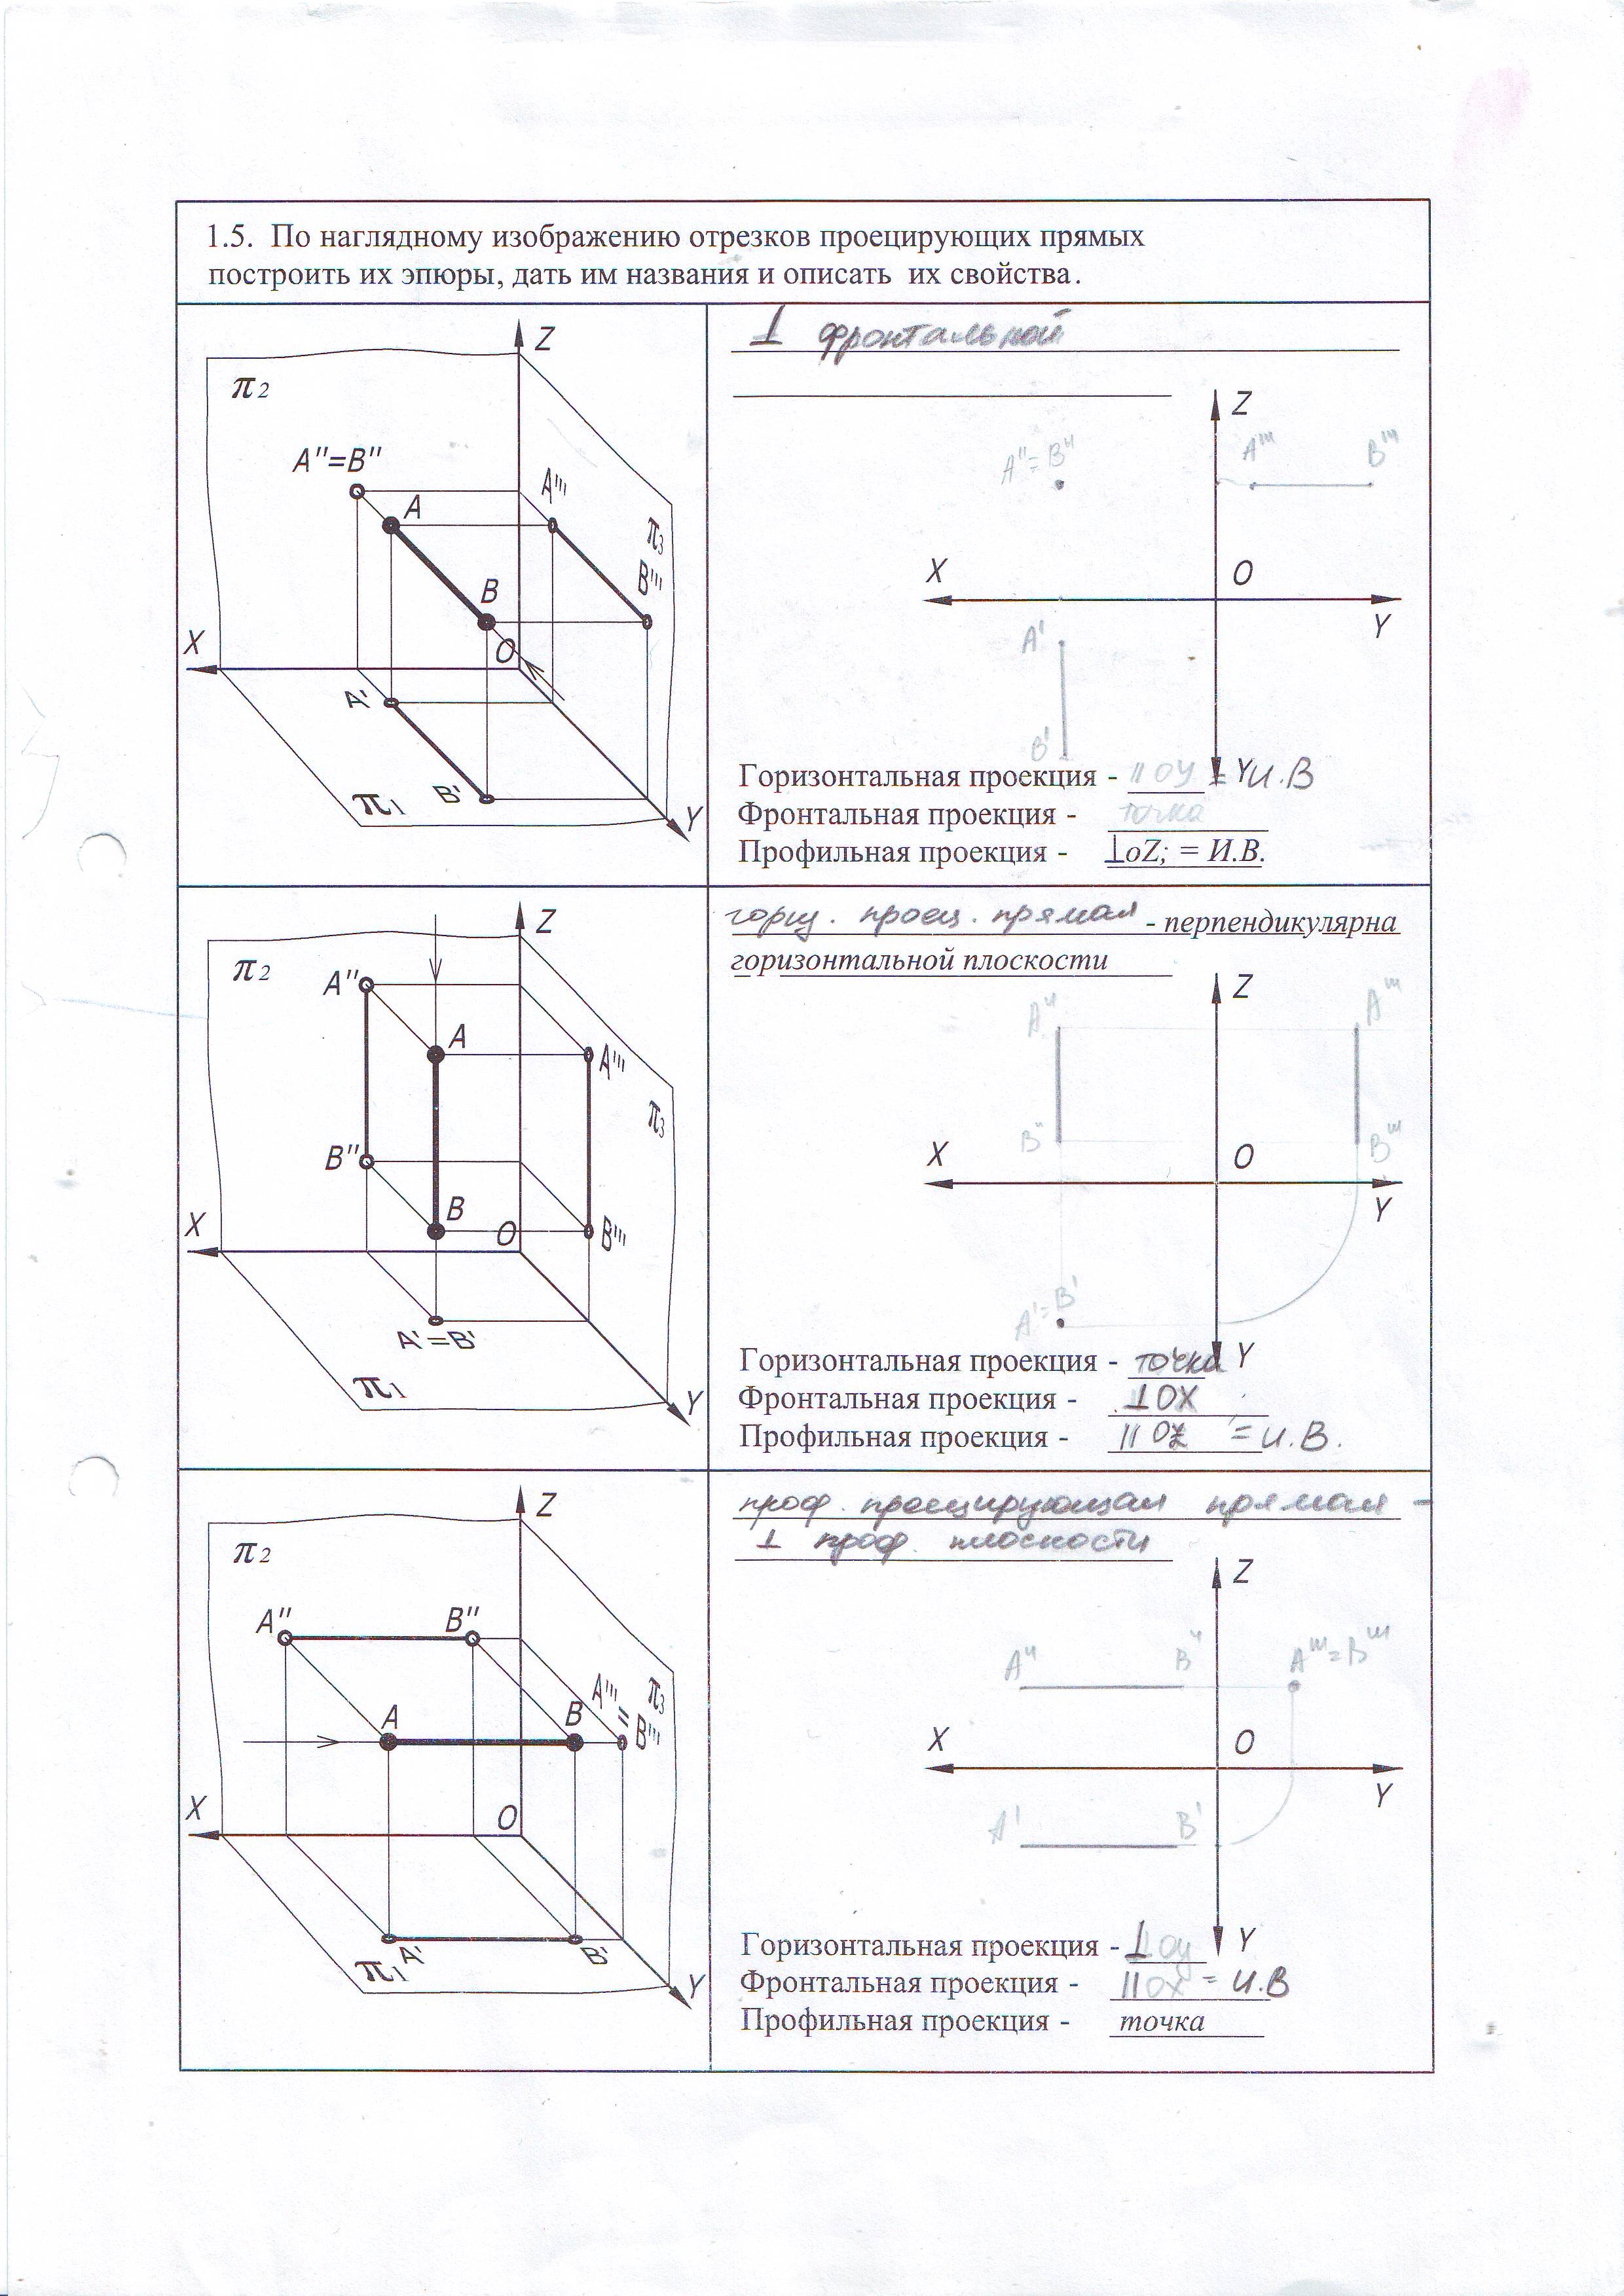 1.5. По наглядному изображению отрезков проецирующих прямых
построить их эпюры, дать им названия и описать их свойства.
Z
π2
A''=B''
A
A'''
π3
B'''
B
X
O
A'
B'
π1
Y
⊥ фронтальной
Z
A''=B''
A'''
B'''
X
O
Y
A'
B'
Y
Горизонтальная проекция - ||OY = И.В
Фронтальная проекция - точка
Профильная проекция - ⊥oZ; = И.В.
Z
π2
A''
A
A'''
π3
B''
B
B'''
X
O
A'=B'
π1
Y
гориз. проец. прямая - перпендикулярна
горизонтальной плоскости
Z
A''
A'''
B''
B'''
X
O
Y
A'=B'
Y
Горизонтальная проекция - точка
Фронтальная проекция - ⊥OX
Профильная проекция - ||OZ = И.В.
Z
π2
A''
B''
A'''
=
B'''
π3
A
B
X
O
π1
A'
B'
Y
проф. проецирующая прямая -
⊥ проф. плоскости
Z
A''
B''
A'''=B'''
X
O
Y
A'
B'
Y
Горизонтальная проекция - ⊥Oy
Фронтальная проекция - ||OX = И.В
Профильная проекция - точка